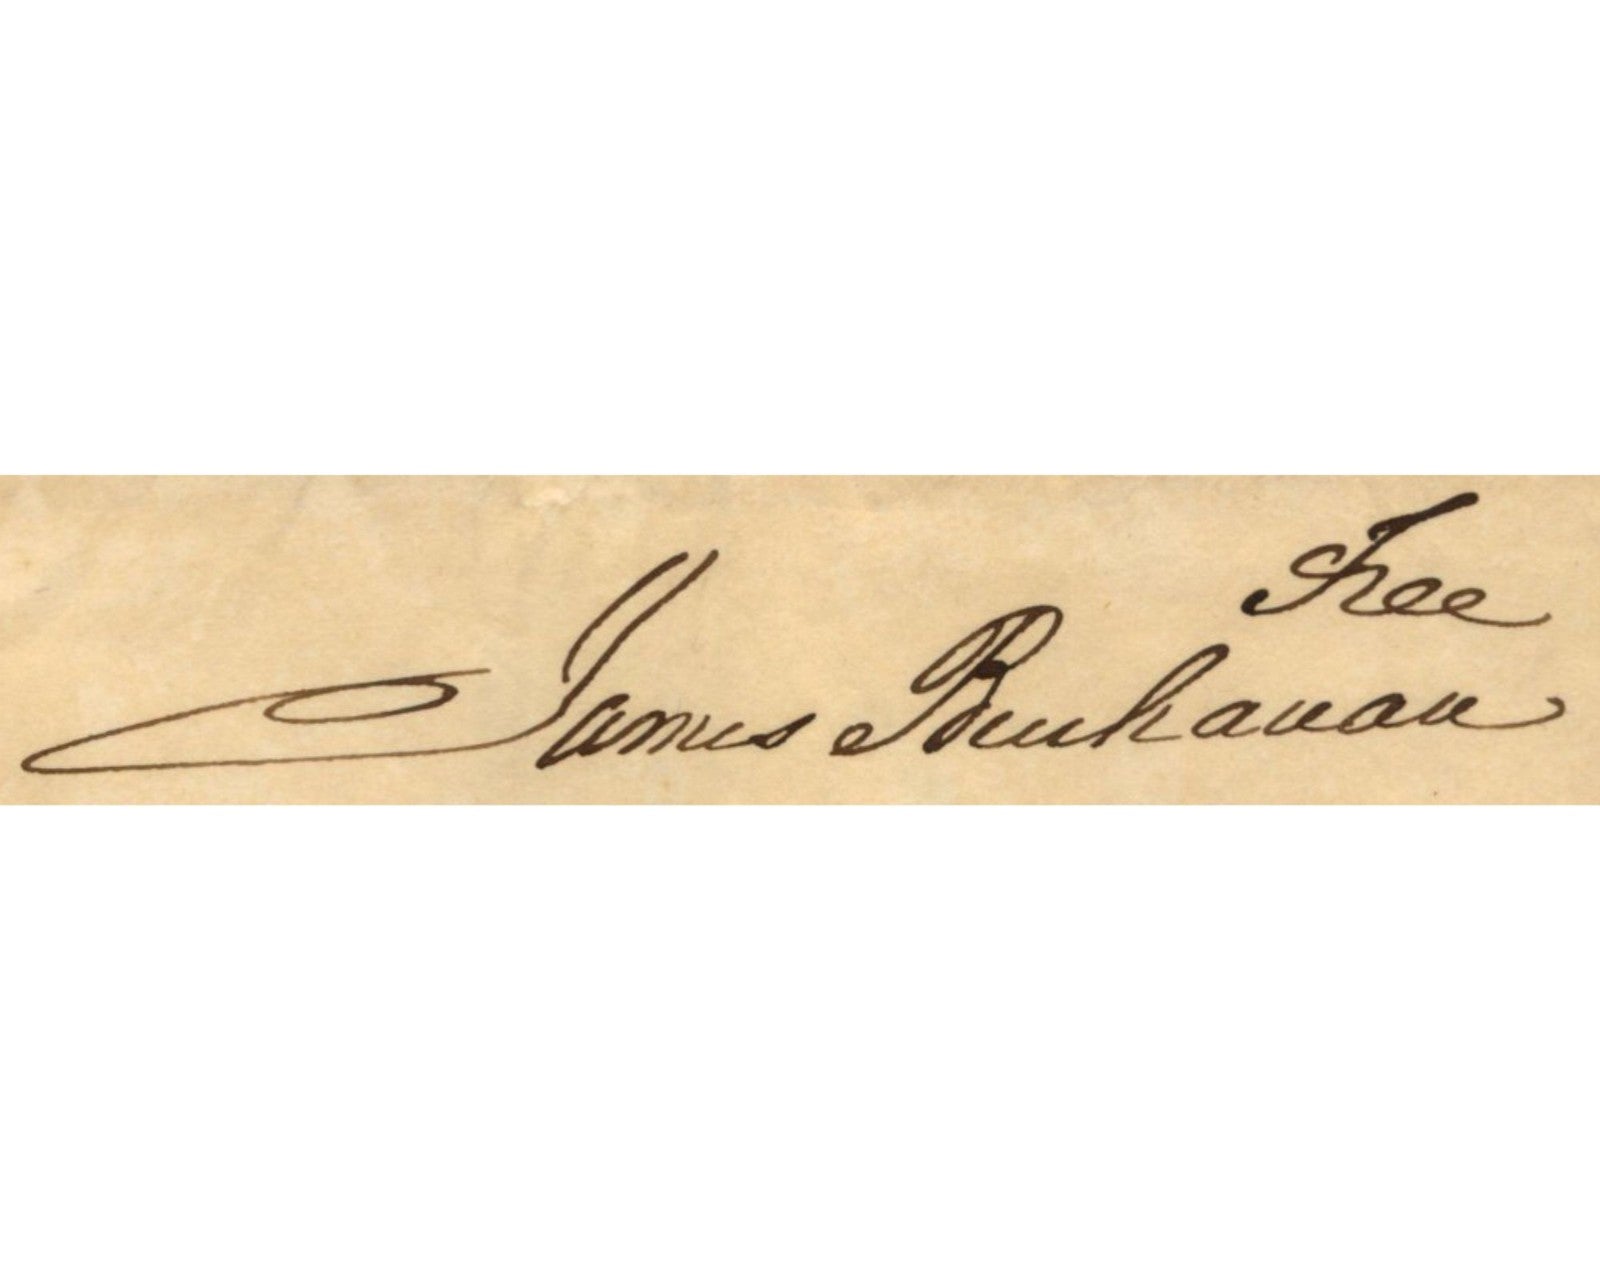 Free
James Buchanan